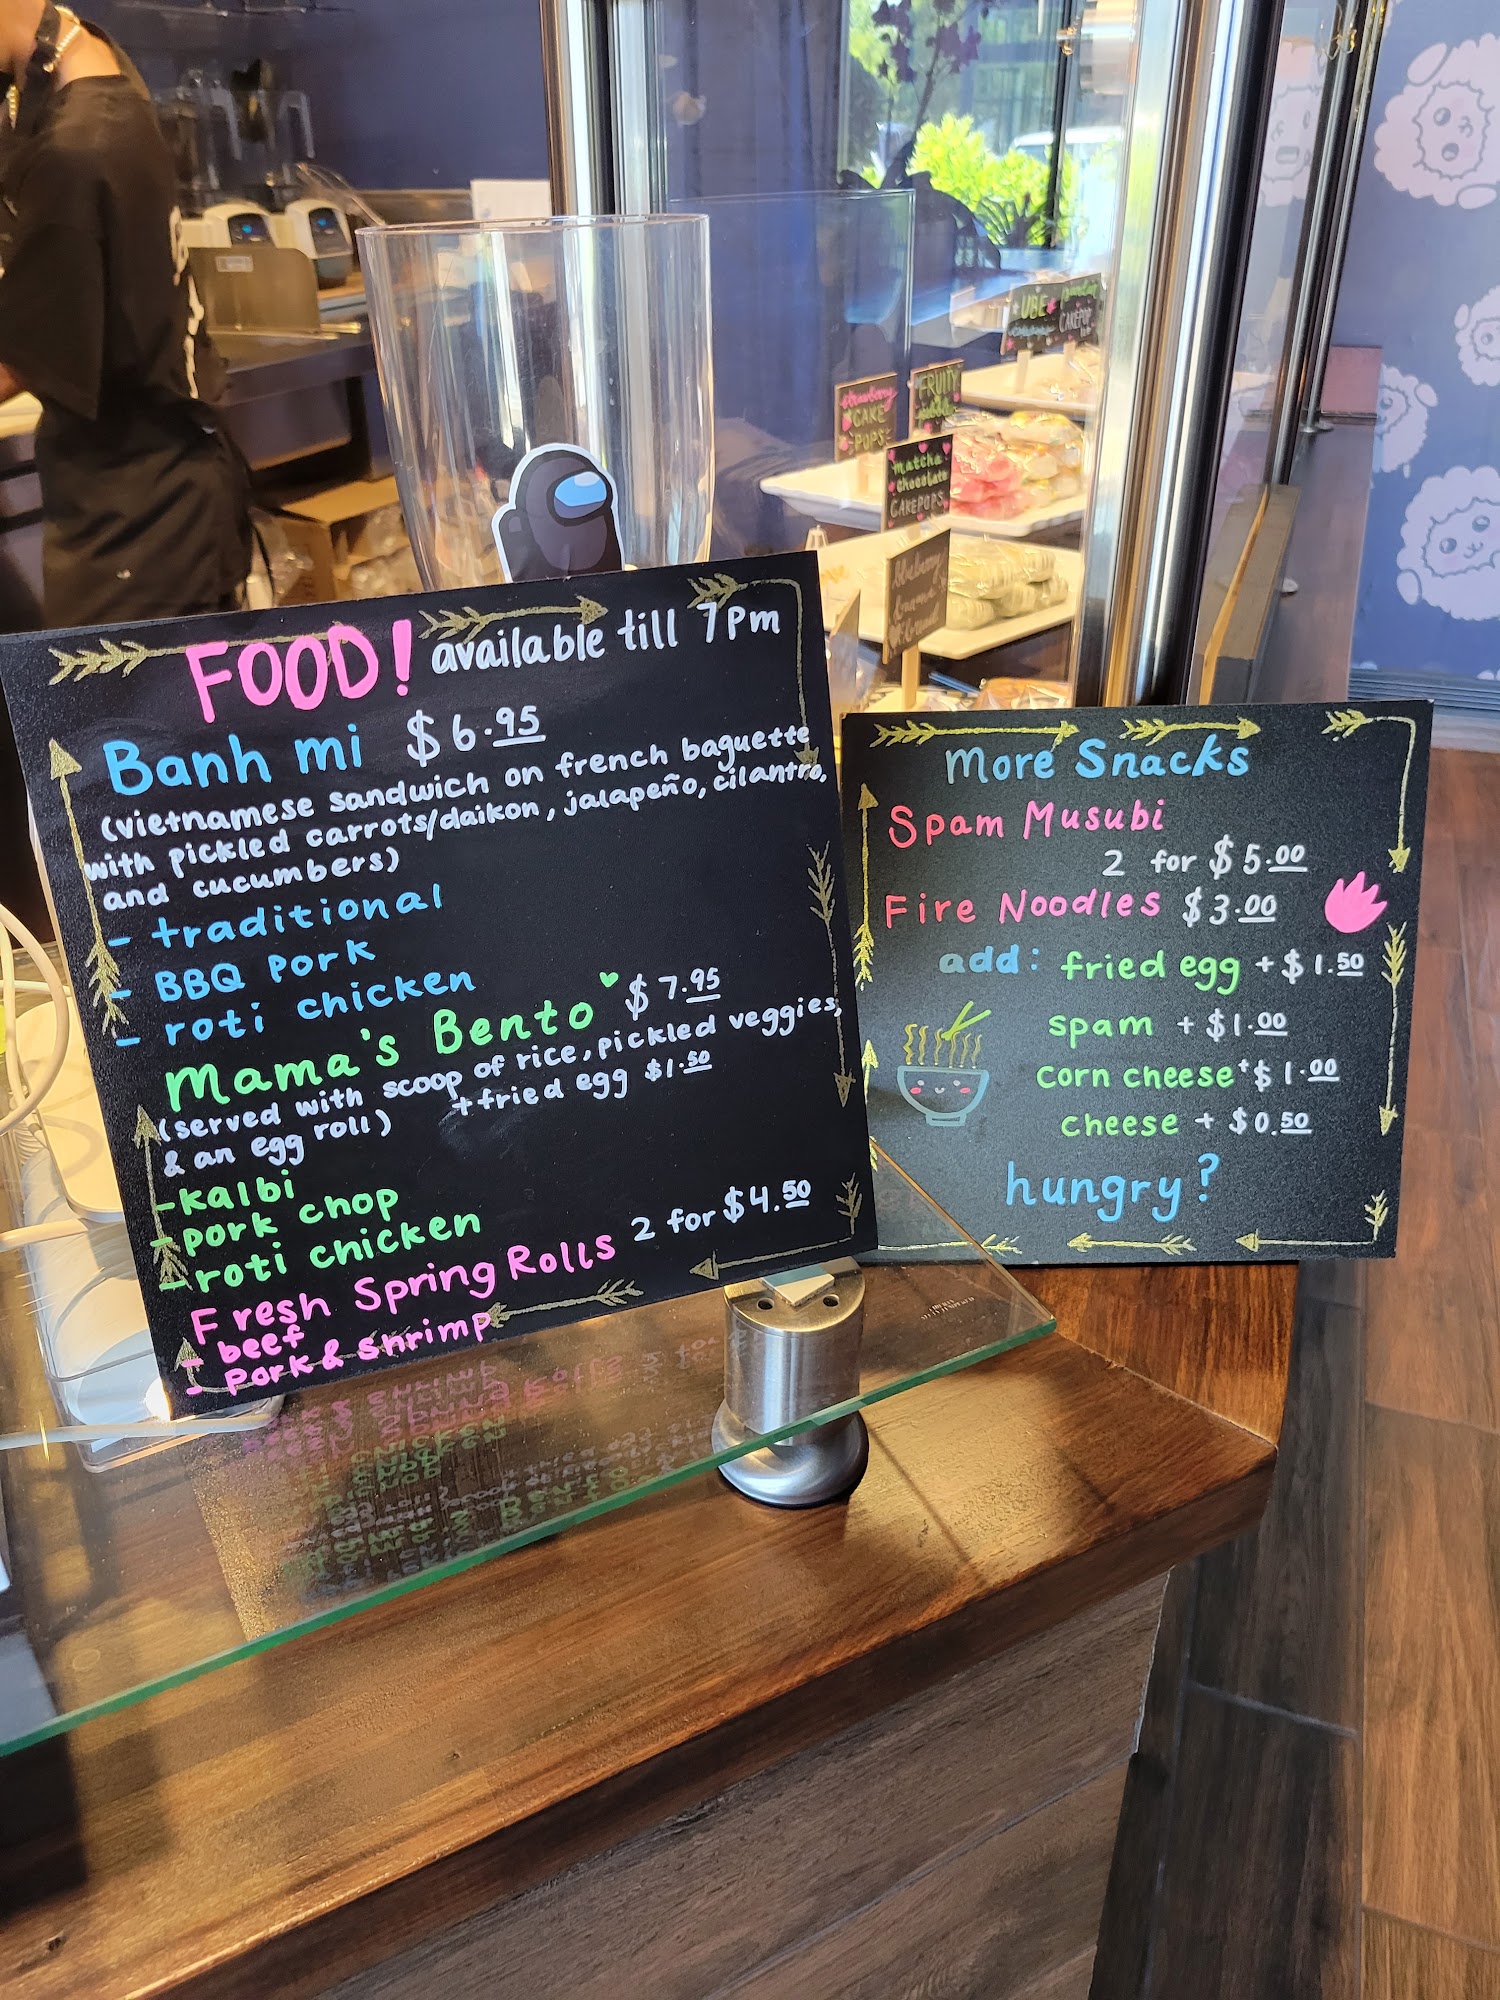 FOOD! available till 7pm
Banh mi $6.95
(vietnamese sandwich on french baguette
with pickled carrots/daikon, jalapeño, cilantro,
and cucumbers)
- traditional
- BBQ Pork
- roti chicken
Mama's Bento $7.95
(served with scoop of rice, pickled veggies,
& an egg roll) +fried egg $1.50
-kalbi
-pork chop
-roti chicken
Fresh Spring Rolls 2 for $4.50
- beef
- pork & shrimp
More Snacks
Spam Musubi
2 for $5.00
Fire Noodles $3.00
add: fried egg +$1.50
spam +$1.00
corn cheese +$1.00
cheese + $0.50
hungry?
UBE
CAKEPOP
strawberry
CAKE
POPS
FRUITY
pebble
matcha
chocolate
CAKEPOPS
blueberry